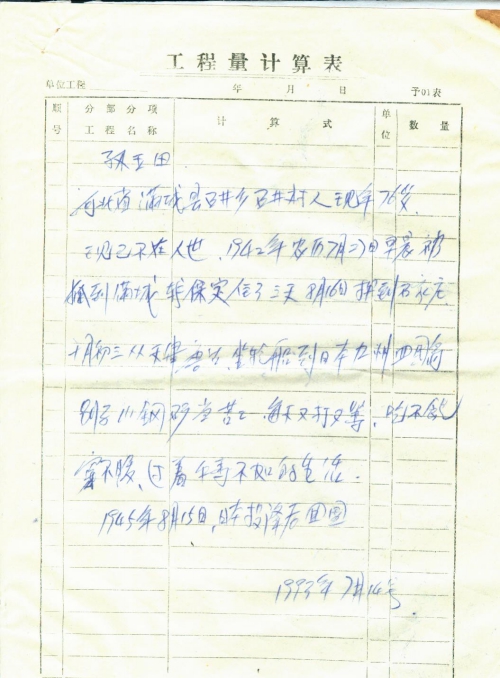 工程量计算表
单位工程 年 月 日 予01表
顺号 分部分项工程名称 计算式 单位 数量
孙玉田
河北省满城县石井乡石井村人现年76岁.
现已不在人世.1942年农历7月27日早晨被
抓到满城转保定住了三天8月16日押到石家庄
十月初三从天津塘沽.坐轮船到日本九州
小钢 当苦工.每天又打又骂.吃不饱
穿不暖、过着牛马不如的生活.
1945年8月15日,日本投降后回国
1993年7月14号